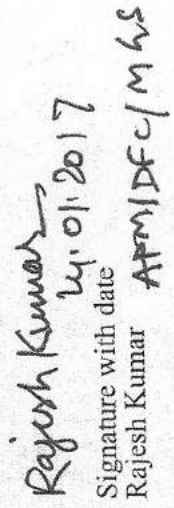 Rajesh Kumar
24.01.2017
Signature with date
Rajesh Kumar
APM/DFC/MGS